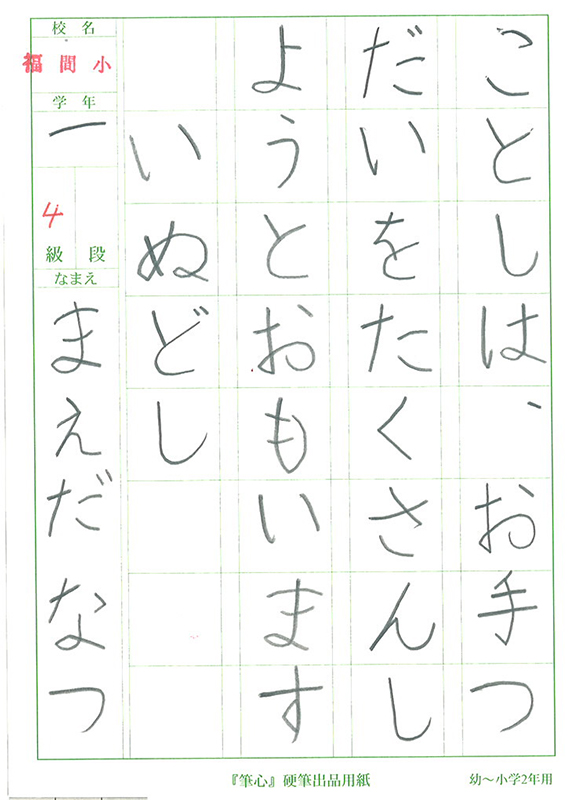 ことしは、お手つ
だいをたくさんし
ようとおもいます
いぬどし
校名
福間小
学年
一
4
級 段
なまえ
まえだなつ
『筆心』硬筆出品用紙
幼～小学2年用